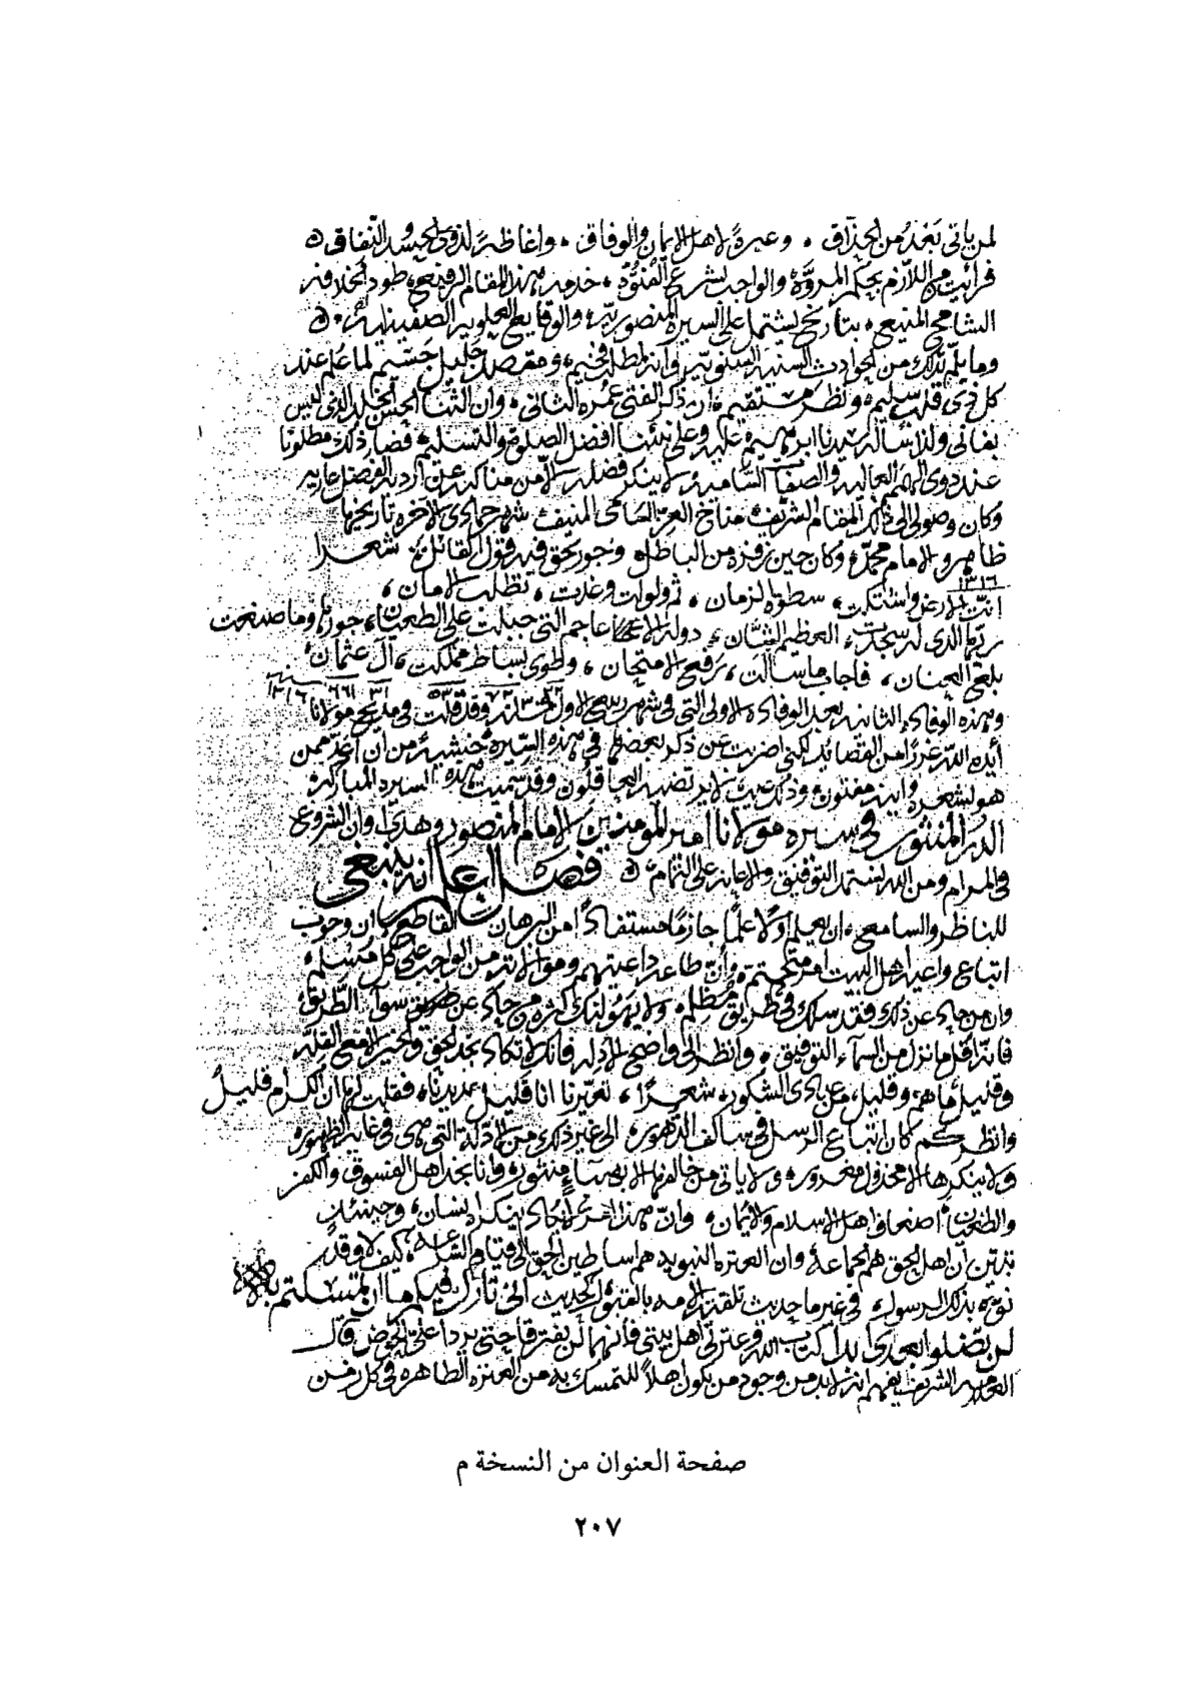 لمن ياتى بَعْدُ من الحذاق ، وعبرةً لاهل الايمان والوفاق ، واغاظةً لذوى الحسد والنّفاق ه
فرأيت من اللازم بحكم المروّة والواجب بشرع الفتوّة ، خدمة هذا المقام الرفيع طود الخلافة
الشامخ المنيع ، بتأريخ يشتمل على السيرة المنصوريّة والوقايع العلوية الصفينية ه
وما يلى ذلك من الحوادث السنية وانه لمطلب فخيم ، ومقصد جليل جسيم لما عُلم عند
كل ذى قلب سليم ، ونظر مستقيم ، ان ذكر الفتى عمره الثانى ، وان الثنا الحسن الخلد الذى ليس
بفانى ولذا سأله سيدنا ابرهيم عليه وعلى نبينا افضل الصلوة والتسليم فصار ذلك مطلوبًا
عند ذوى الهمم العالية والصفات السّامية لا ينكر فضله الا من مناكبه عن اردية الفضل عارية
وكان وصولى الى ذلك المقام الشريف مناخ العز السامى المنيف شهر جمادى الآخرة تاريخها
ظاهر والامام محمد وكان حين زفرة من الباطل وجور يحق فيه قول القائل شعرا
١٣١٦
انّت الارض واشتكت ، سطوة الزمان ، ثم ولولت وغدت ، تطلب الامان ،
ربّها الذى له سجدت ، العظيم الشان ، دولة الاعاجم التى جبلت على الطغيان ، جورها وما صنعت
بلغ العنان ، فاجاب ما سألت ، برفع الامتحان ، وطوى بساط مملكت ، آل عثمان
٣١ ٦٦١ سنة ١٣١٦
وهذه الوفادة الثانية بعد الوفادة الاولى التى فى شهر ربيع الاول وقد قلت فى مديح مولانا
أيده الله غررًا من القصائد لكنى اضربت عن ذكر بعضها فى هذه السّيرة خشيةً من ان أعَدّ ممن
هو بشعره وابنه مفتون وذلك عيب لا يرتضيه العاقلون وقد سميت هذه السيرة المباركة
الدر المنثور فى سيرة مولانا امير المؤمنين الامام المنصور وهذا اوان الشروع
فى المرام ومن الله نستمد التوفيق والاعانة على التمام ه فصل اعلم انه ينبغى
للناظر والسامع ، ان يعلم اولا علمًا جازمًا مستفادًا من البرهان القاطع بان وجوب
اتباع داعى اهل البيت امر متحتم وأنّ طاعة داعيتهم وموالاته من الواجب على كل مسلم
وان من حاد عن ذلك فقد سلك فى طريق مُظلم ولا يهولنّك كثرة من حاد عن سوآء الطّريق
فانه اقل ما نزل من السمآء التوفيق ، وانظر الى واضح الادلة فانك لا تكاد تجد الحق والخير الا مع القلّة
وقليل ما هم وقليل من عبادى الشكور شعرًا ، تعيّرنا انا قليل عديدنا ، فقلت لها ان الكرام قليلُ
وانظر كم كان اتباع الرسل فى سالف الدّهور الى غير ذلك من الأدلّة التى هى فى غاية الظهور
ولا ينكرها الا مخذول مغرور ولا ياتى من خالفها الا بهباءٍ منثور وانا نجد اهل الفسوق والكفر
والطغيان اضعاف اهل الاسلام والايمان ، وانّ هذا امر لا يكاد ينكره انسان ، وحينئذٍ
تبين أن اهل الحق هم الجماعة وان العترة النبوية هم اساطين الحق الى قيام الساعة ، كيف لا وقد
نوّه بذلك الرسول فى غير ما حديث تلقته الامة بالقبول كحديث انى تارك فيكم ما ان تمسكتم به
لن تضلوا بعدى ابدا كتاب الله وعترتى اهل بيتى فانهما لن يفترقا حتى يردا على الحوض قال
الشريف يفهم انه لابد من وجود من يكون اهلاً للتمسك به من العترة الطاهرة فى كل زمن
صفحة العنوان من النسخة م
٢٠٧